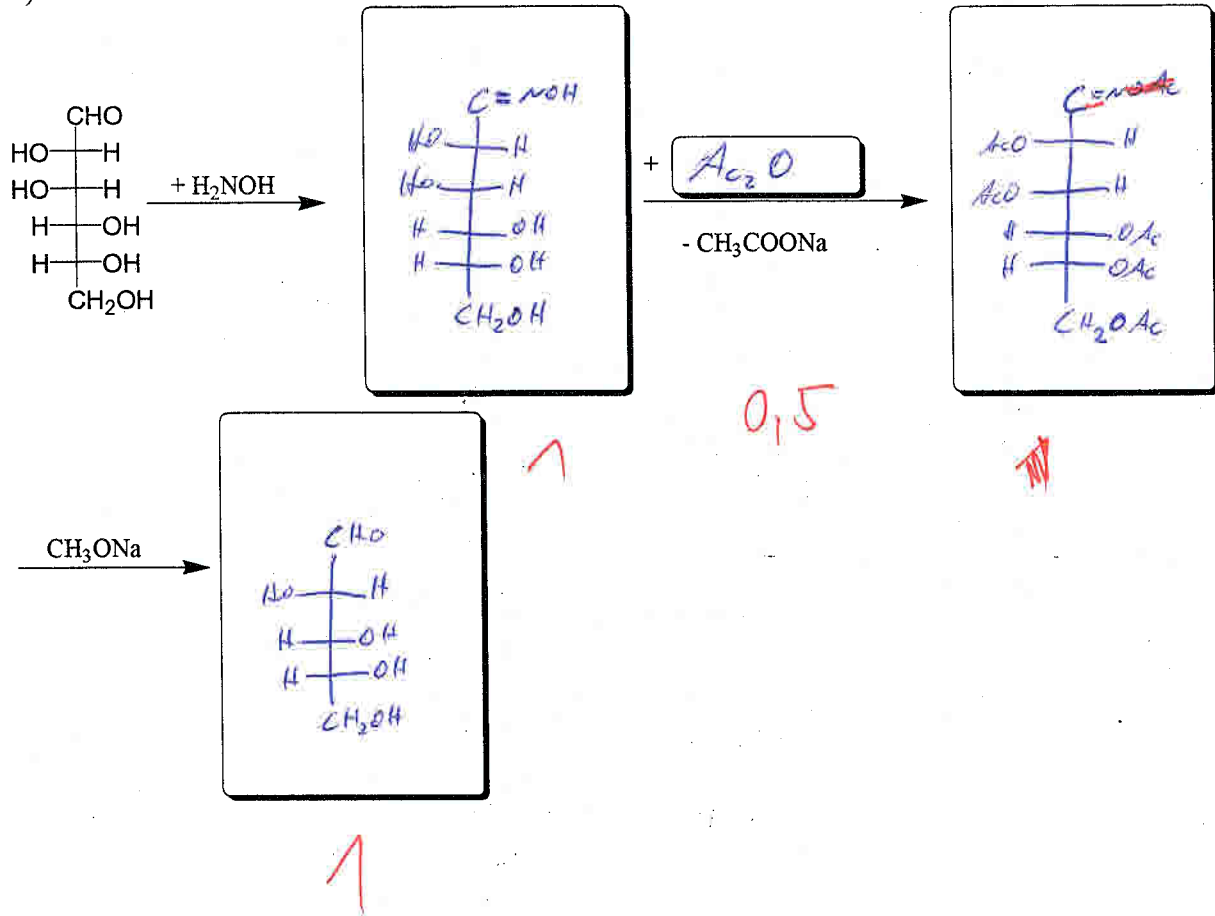 )
CHO
HO H
HO H
H OH
H OH
CH₂OH
+ H₂NOH
C=NOH
HO H
HO H
H OH
H OH
CH₂OH
+ Ac₂O
- CH₃COONa
C=NOAc
AcO H
AcO H
H OAc
H OAc
CH₂OAc
1
0,5
CH₃ONa
CHO
HO H
H OH
H OH
CH₂OH
1